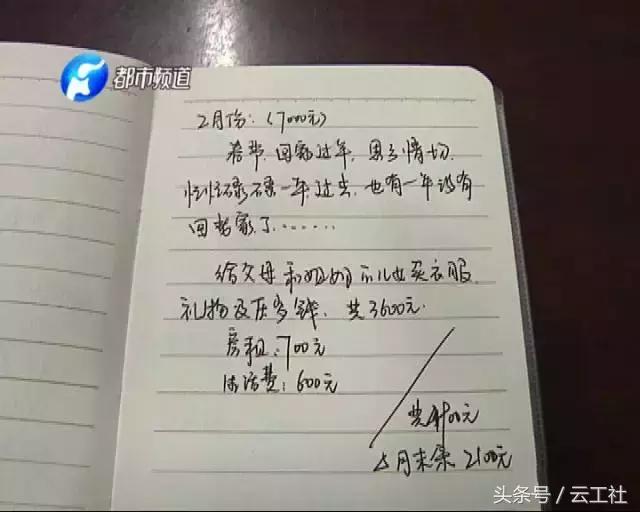 都市频道
2月份:(7000元)
春节,回家过年,思乡情切.
忙忙碌碌一年过去,也有一年没有
回老家了......
给父母和姐姐 买衣服、
礼物及压岁钱,共3600元.
房租:700元
生活费:600元
共4900元
月末余2100元
头条号/云工社